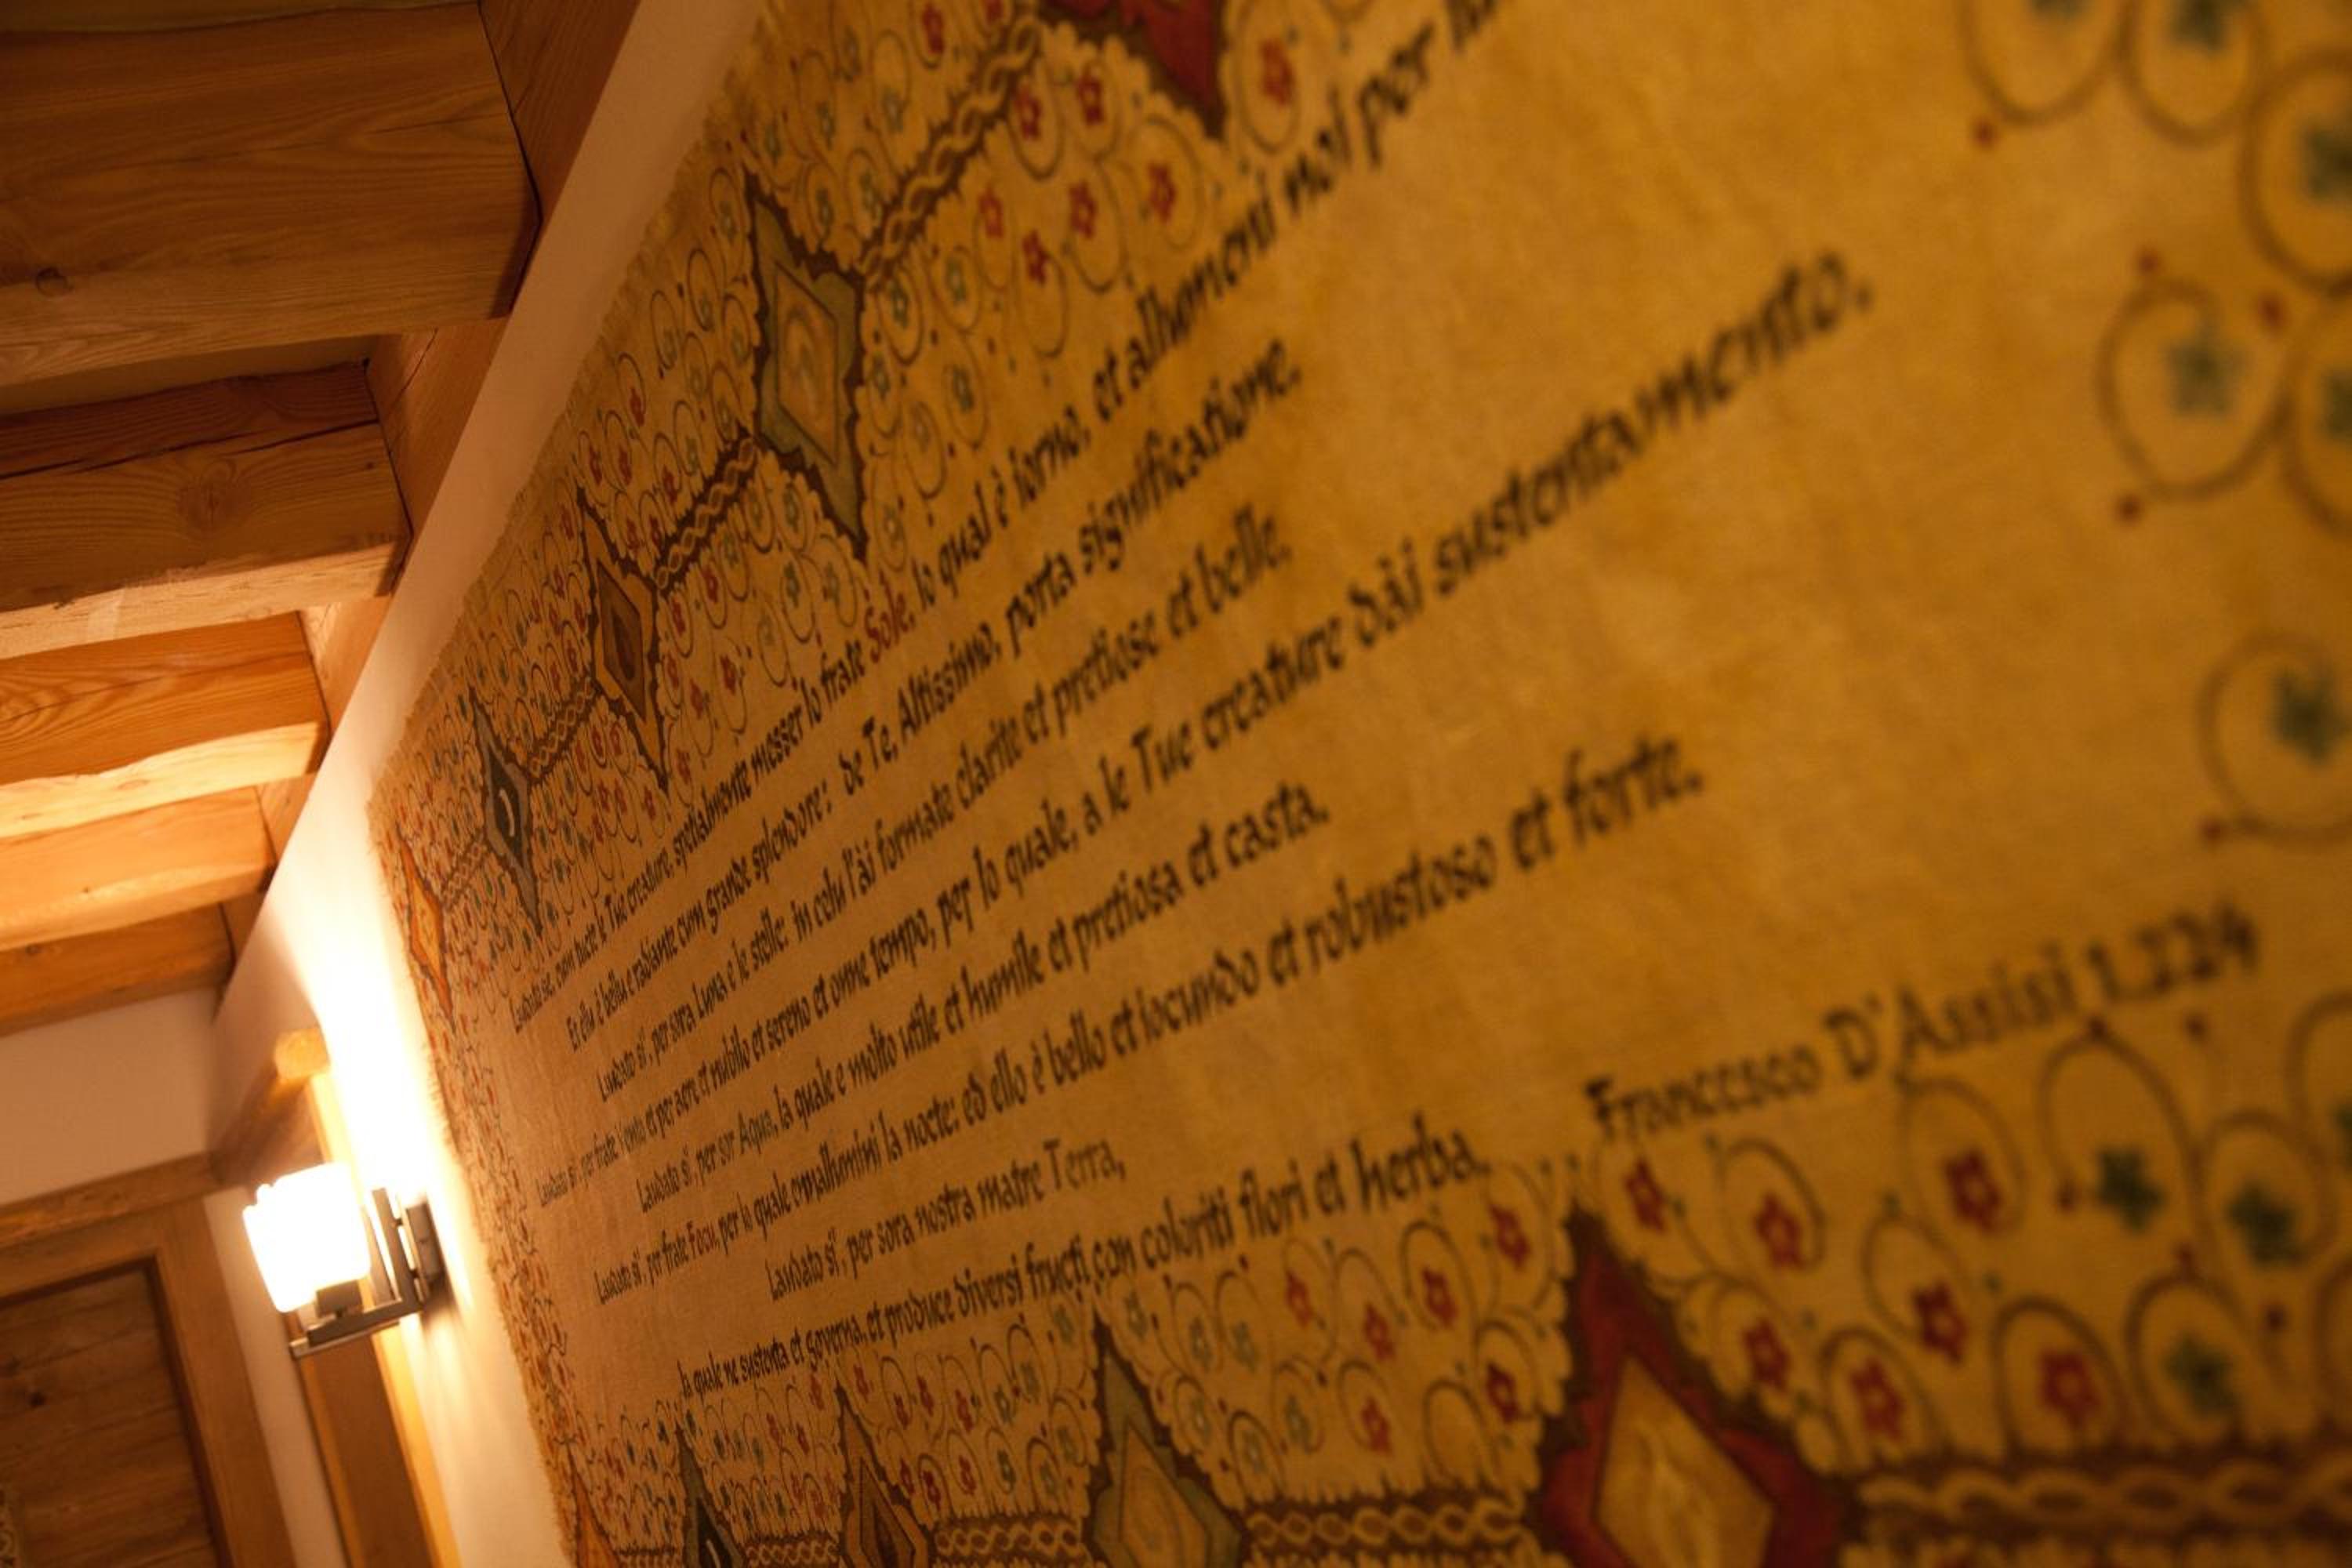 Laudato sie, cum tucte le Tue creature, spetialmente messer lo frate Sole, lo qual è iorno, et allumeni noi per lui
Et ellu è bellu e radiante cum grande splendore: de Te, Altissimo, porta significatione.
Laudato si', per sora Luna e le stelle: in celu l'ài formate clarite et pretiose et belle.
Laudato si', per frate Vento et per aere et nubilo et sereno et onne tempo, per lo quale, a le Tue creature dài sustentamento.
Laudato si', per sor Aqua, la quale e molto utile et humile et pretiosa et casta.
Laudato si', per frate Focu, per lo quale ennallumini la nocte: ed ello è bello et iocundo et robustoso et forte.
Laudato si', per sora nostra matre Terra,
la quale ne sustenta et governa, et produce diversi fructi con coloriti flori et herba.
Francesco D'Assisi 1224